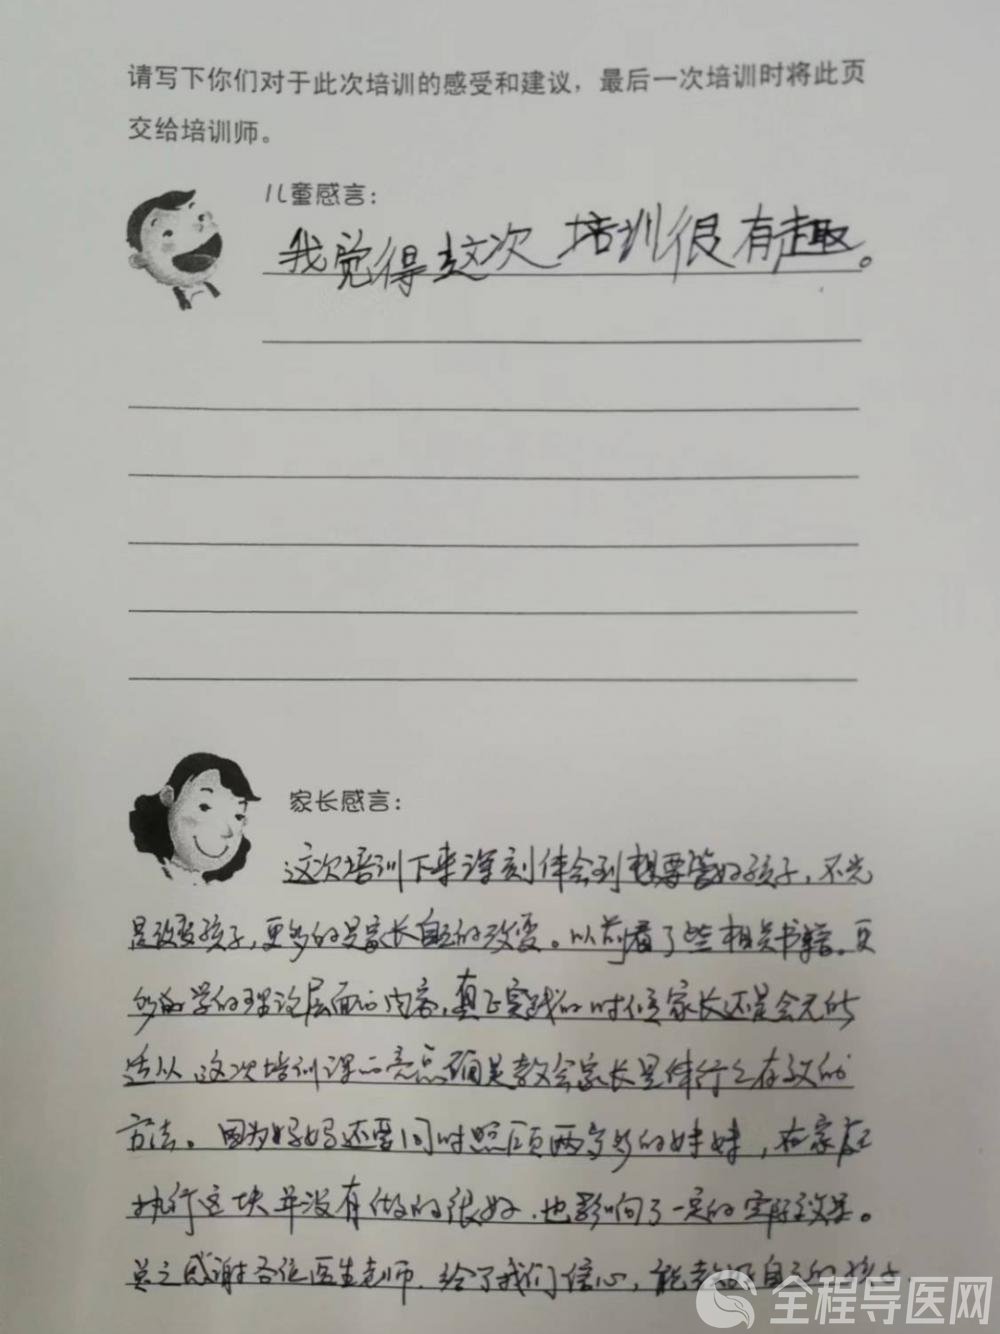 请写下你们对于此次培训的感受和建议，最后一次培训时将此页
交给培训师。
儿童感言：
我觉得这次培训很有趣。
家长感言：
这次培训下来深刻体会到想要管好孩子，不光
是改变孩子，更多的是家长自己的改变。以前看了些相关书籍，更
多的学的理论层面的内容，真正实践的时候家长还是会无所
适从，这次培训课的亮点确是教会家长具体行之有效的
方法。因为妈妈还要同时照顾两岁多的妹妹，在家庭
执行这块并没有做的很好，也影响了一定的实际效果。
总之感谢各位医生老师，给了我们信心，能教好自己的孩子
全程导医网